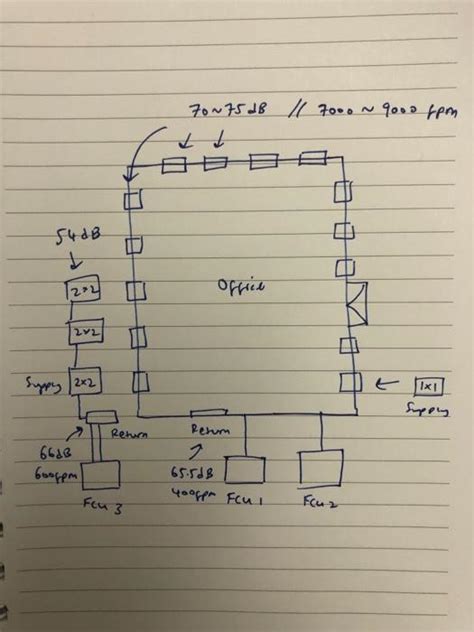 70~75dB // 7000 ~ 9000 fpm
54dB
2x2
Office
2x2
Supply
2x2
1x1
Supply
Return
Return
66dB
600fpm
65.5dB
400fpm
FCU 3
FCU 1
FCU 2